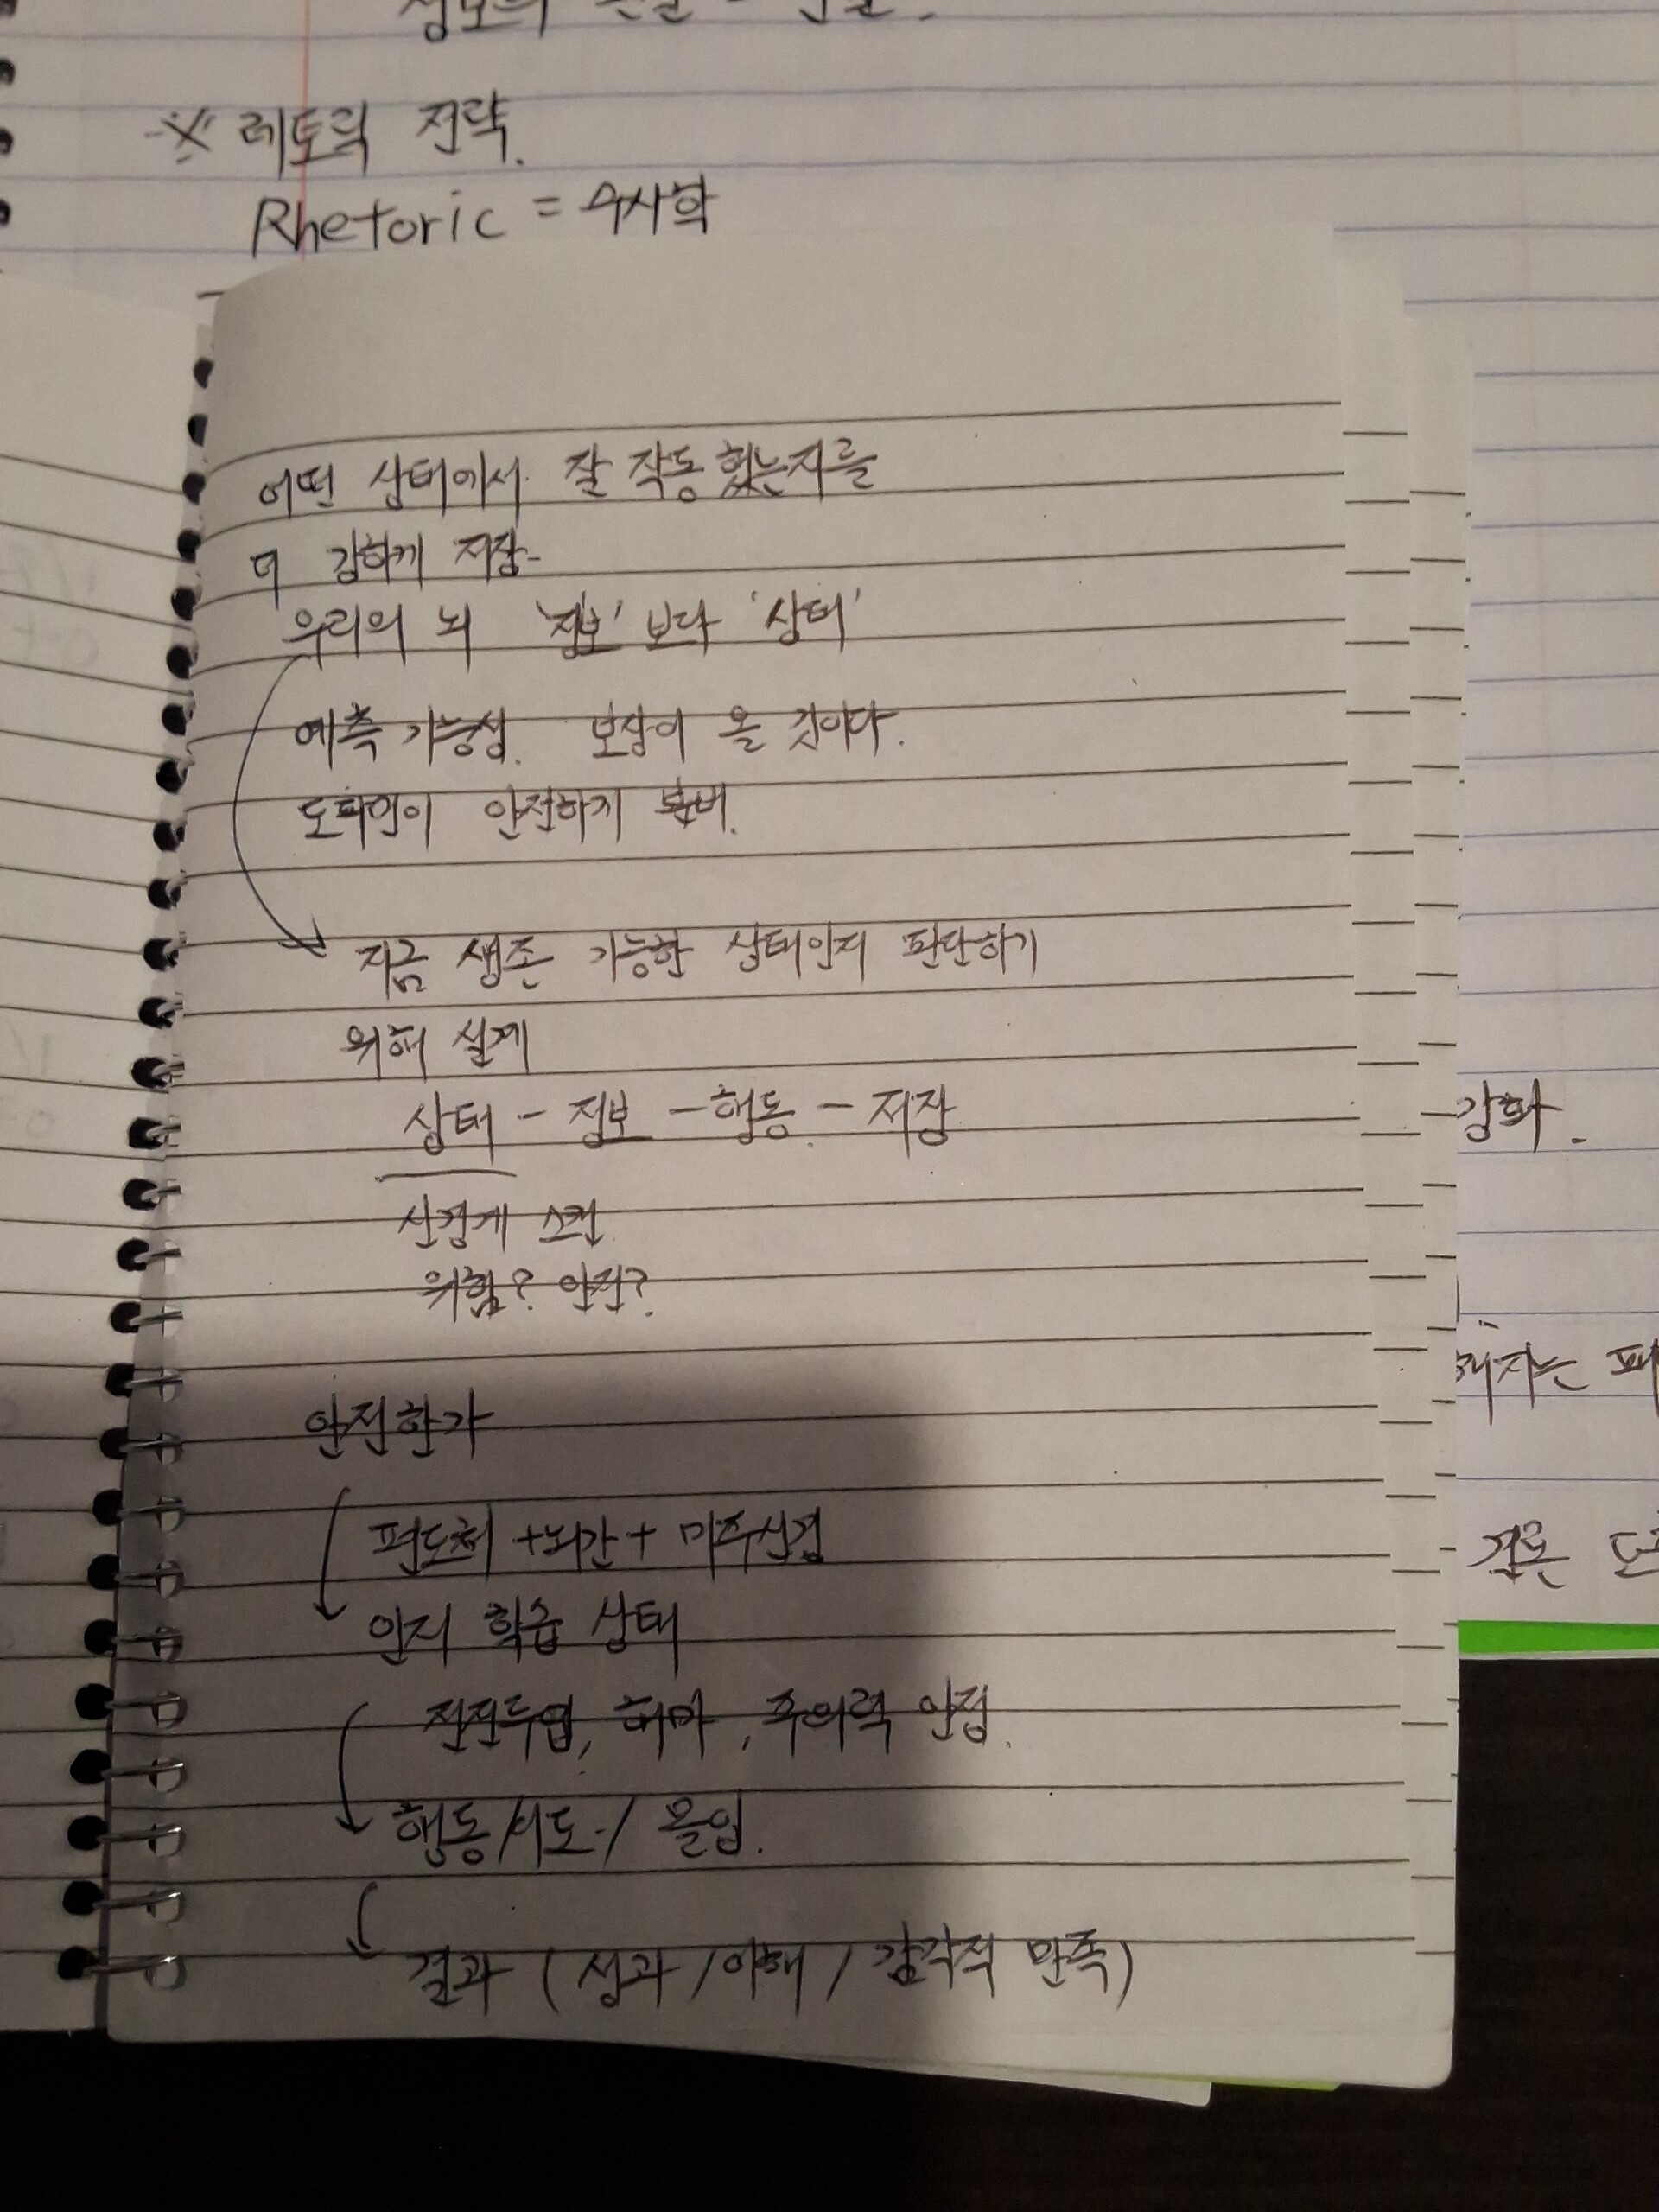 ※ 레토릭 전략.
Rhetoric = 수사학
어떤 상태에서 잘 작동했는지를
더 강하게 저장-
우리의 뇌 '정보' 보다 '상태'
예측 가능성. 보상이 올 것이다.
도파민이 안전하게 분비.
지금 생존 가능한 상태인지 판단하기
위해 설계
상태 - 정보 - 행동 - 저장
강화.
신경계 스캔
위험? 안전?
안전한가
편도체 + 뇌간 + 미주신경
인지 학습 상태
전전두엽, 해마, 주의력 안정.
행동/시도/몰입.
결과 (성과/이해/감각적 만족)